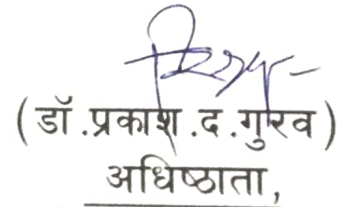 ( डॉ .प्रकाश .द .गुरव )
अधिष्ठाता,